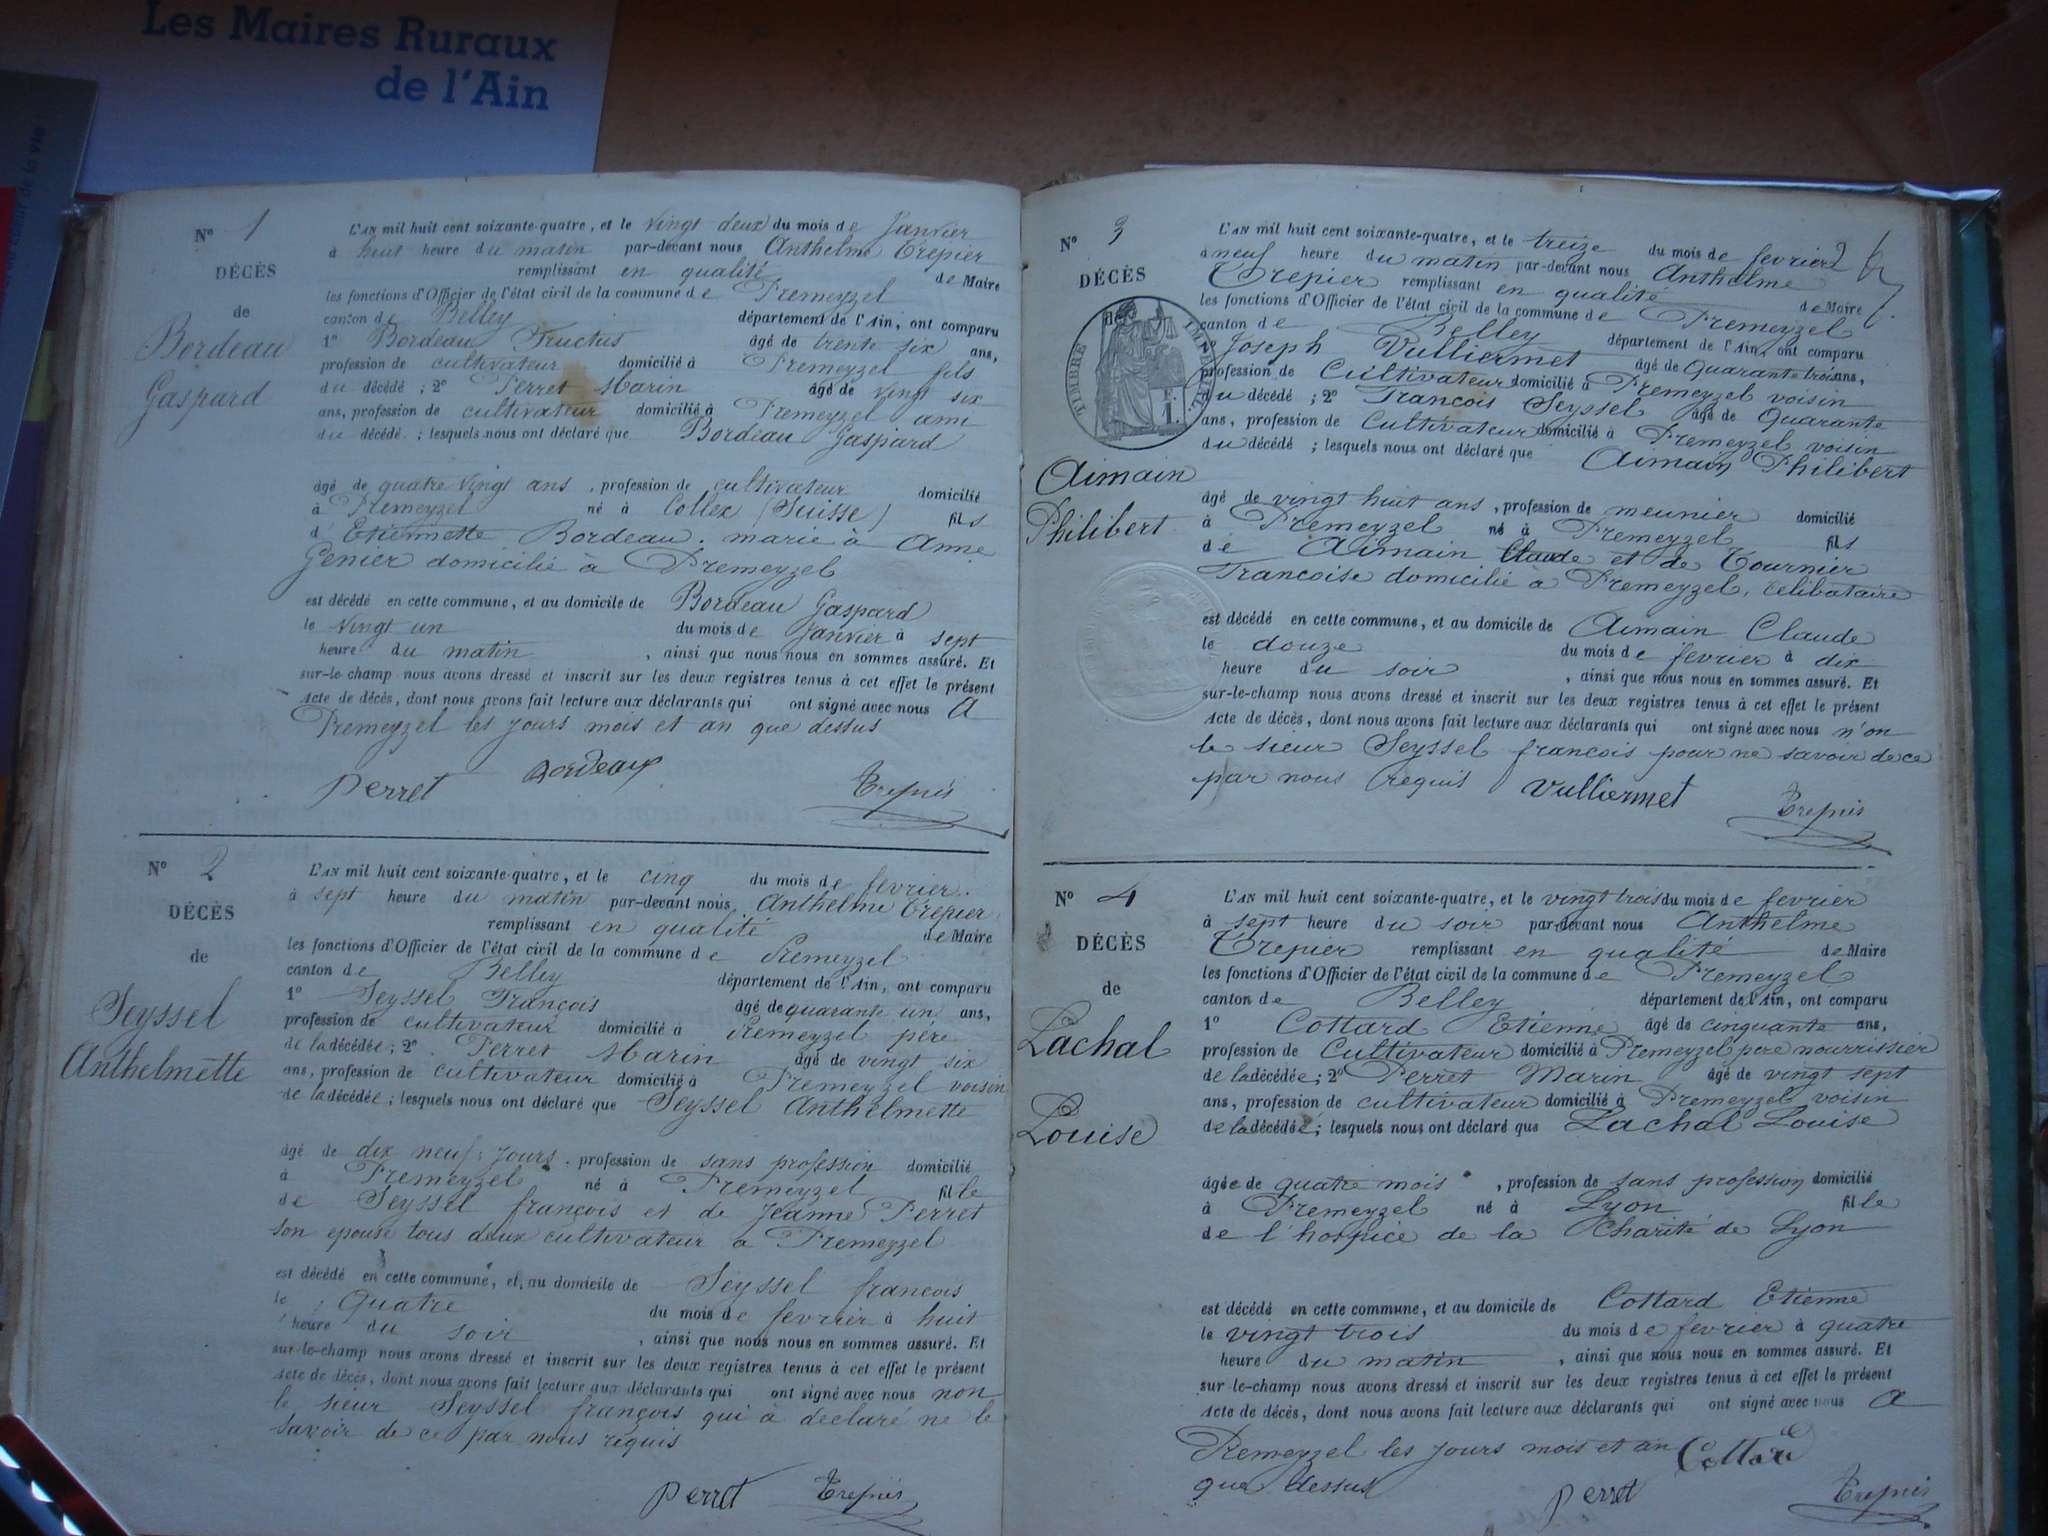 Les Maires Ruraux
de l'Ain
N° 1
DÉCÈS
de
Bordeau
Gaspard
L'AN mil huit cent soixante-quatre, et le vingt deux du mois de Janvier
à huit heure du matin par-devant nous Anthelme Trepier
remplissant en qualité de Maire
les fonctions d'Officier de l'état civil de la commune de Premeyzel
canton de Belley département de l'Ain, ont comparu
1° Bordeau Fructus âgé de trente six ans,
profession de cultivateur domicilié à Premeyzel fils
du décédé ; 2° Perret Marin âgé de vingt six
ans, profession de cultivateur domicilié à Premeyzel ami
du décédé ; lesquels nous ont déclaré que Bordeau Gaspard
âgé de quatre vingt ans , profession de cultivateur domicilié
à Premeyzel né à Collex (Suisse) fils
d' Etiennette Bordeau. marié à Anne
Genier domicilié à Premeyzel
est décédé en cette commune, et au domicile de Bordeau Gaspard
le vingt un du mois de Janvier à sept
heure du matin , ainsi que nous nous en sommes assuré. Et
sur-le-champ nous avons dressé et inscrit sur les deux registres tenus à cet effet le présent
Acte de décès, dont nous avons fait lecture aux déclarants qui ont signé avec nous A
Premeyzel les jours mois et an que dessus
Perret Bordeaux Trepier
N° 2
DÉCÈS
de
Seyssel
Anthelmette
L'AN mil huit cent soixante-quatre, et le cinq du mois de fevrier.
à sept heure du matin par-devant nous Anthelme Trepier
remplissant en qualité de Maire
les fonctions d'Officier de l'état civil de la commune de Premeyzel
canton de Belley département de l'Ain, ont comparu
1° Seyssel François âgé de quarante un ans,
profession de cultivateur domicilié à Premeyzel père
de la décédée ; 2° Perret Marin âgé de vingt six
ans, profession de cultivateur domicilié à Premeyzel voisin
de la décédée ; lesquels nous ont déclaré que Seyssel Anthelmette
âgé de dix neuf jours , profession de sans profession domicilié
à Premeyzel né à Premeyzel fille
de Seyssel françois et de Jeanne Perret
son epouse tous deux cultivateur a Premeyzel
est décédé en cette commune, et au domicile de Seyssel francois
le Quatre du mois de fevrier à huit
heure du soir , ainsi que nous nous en sommes assuré. Et
sur-le-champ nous avons dressé et inscrit sur les deux registres tenus à cet effet le présent
Acte de décès, dont nous avons fait lecture aux déclarants qui ont signé avec nous non
le sieur Seyssel françois qui à declaré ne le
savoir de ce par nous requis
Perret Trepier
N° 3
DÉCÈS
de
TIMBRE IMPÉRIAL
F.
1.
Aimain
Philibert
L'AN mil huit cent soixante-quatre, et le treize du mois de fevrier 2
à neuf heure du matin par-devant nous Anthelme
Trepier remplissant en qualité de Maire
les fonctions d'Officier de l'état civil de la commune de Premeyzel
canton de Belley département de l'Ain, ont comparu
1° Joseph Vulliermet âgé de Quarante trois ans,
profession de Cultivateur domicilié à Premeyzel voisin
du décédé ; 2° Francois Seyssel âgé de Quarante
ans, profession de Cultivateur domicilié à Premeyzel voisin
du décédé ; lesquels nous ont déclaré que Aimain Philibert
âgé de vingt huit ans , profession de meunier domicilié
à Premeyzel né à Premeyzel fils
de Aimain Claude et de Tournier
Francoise domicilié à Premeyzel, celibataire
est décédé en cette commune, et au domicile de Aimain Claude
le douze du mois de fevrier à dix
heure du soir , ainsi que nous nous en sommes assuré. Et
sur-le-champ nous avons dressé et inscrit sur les deux registres tenus à cet effet le présent
Acte de décès, dont nous avons fait lecture aux déclarants qui ont signé avec nous n'on
le sieur Seyssel francois pour ne savoir de ce
par nous requis Vulliermet Trepier
N° 4
DÉCÈS
de
Lachal
Louise
L'AN mil huit cent soixante-quatre, et le vingt trois du mois de fevrier
à sept heure du soir par-devant nous Anthelme
Trepier remplissant en qualité de Maire
les fonctions d'Officier de l'état civil de la commune de Premeyzel
canton de Belley département de l'Ain, ont comparu
1° Cottard Etienne âgé de cinquante ans,
profession de Cultivateur domicilié à Premeyzel pere nourrissier
de la décédée ; 2° Perret Marin âgé de vingt sept
ans, profession de cultivateur domicilié à Premeyzel voisin
de la décédée ; lesquels nous ont déclaré que Lachal Louise
âgée de quatre mois , profession de sans profession domicilié
à Premeyzel né à Lyon fille
de l'hospice de la Charité de Lyon
est décédé en cette commune, et au domicile de Cottard Etienne
le vingt trois du mois de fevrier à quatre
heure du matin , ainsi que nous nous en sommes assuré. Et
sur-le-champ nous avons dressé et inscrit sur les deux registres tenus à cet effet le présent
Acte de décès, dont nous avons fait lecture aux déclarants qui ont signé avec nous A
Premeyzel les jours mois et an Cottard
que dessus Perret Trepier